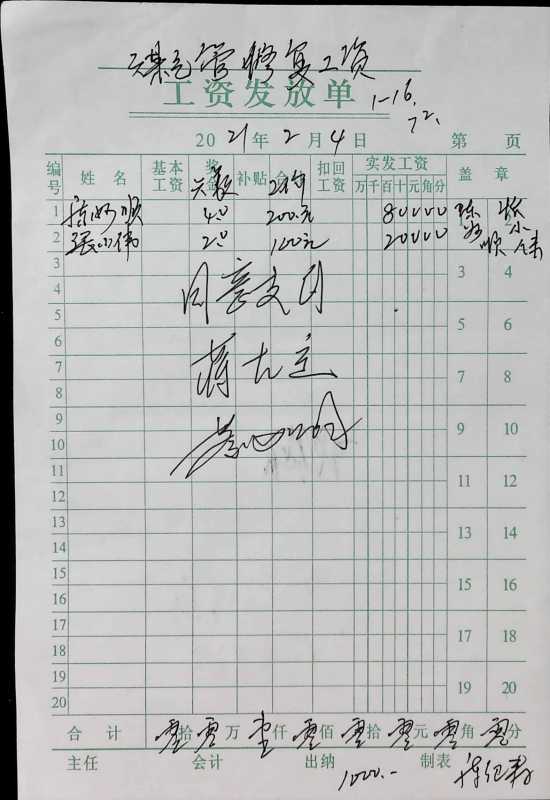 煤气管修复工资
工资发放单
1-16.
72.
2021年2月4日 第 页
编号 姓名 基本工资 奖金 关数 补贴 合 扣回工资 实发工资 盖章
万千百十元角分
1 陈 顺 4.0 200元 80000 陈 顺 张小伟
2 张小伟 2.0 100元 20000
3 3 4
同意支付
4
5 5 6
6
蒋 立
7 7 8
8
9 9 10
10
11 11 12
12
13 13 14
14
15 15 16
16
17 17 18
18
19 19 20
20
合计 零拾零万壹仟零佰零拾零元零角零分
主任 会计 出纳 1000.- 制表